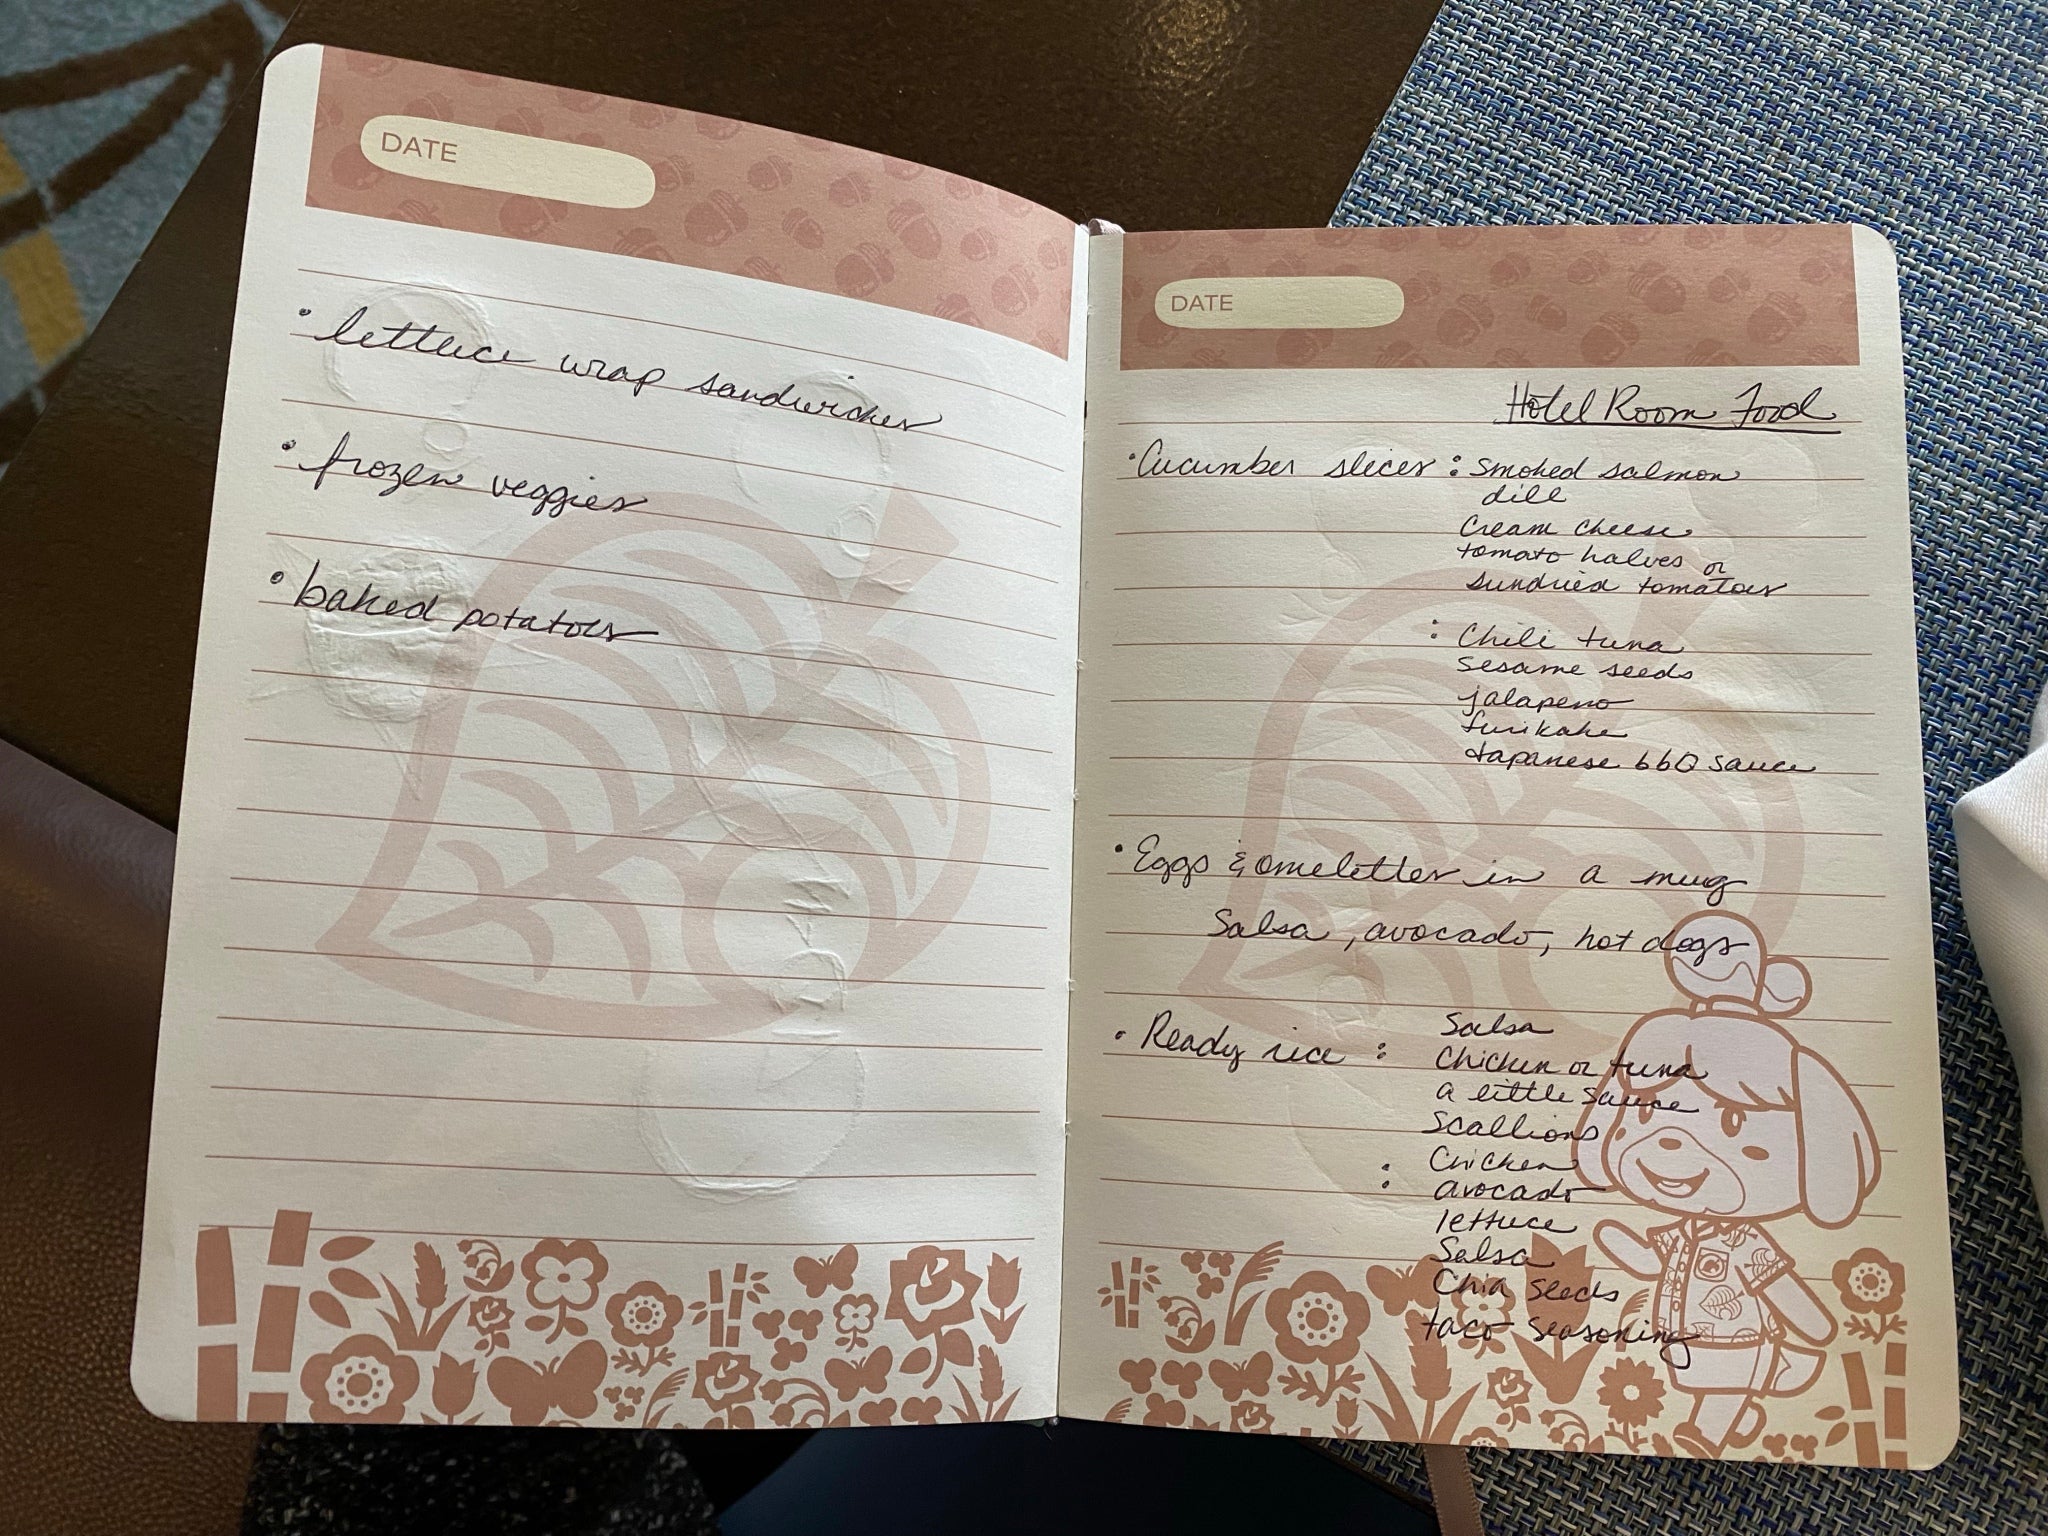 DATE
• lettuce wrap sandwiches
• frozen veggies
• baked potatoes
DATE
Hotel Room Food
• Cucumber slices : smoked salmon
dill
cream cheese
tomato halves or
sundried tomatoes
: Chili tuna
sesame seeds
jalapeno
furikake
Japanese bbQ sauce
• Eggs & omelettes in a mug
Salsa, avocado, hot dogs
• Ready rice : Salsa
Chicken or tuna
a little sauce
Scallions
: Chicken
: avocado
lettuce
Salsa
Chia seeds
taco seasoning